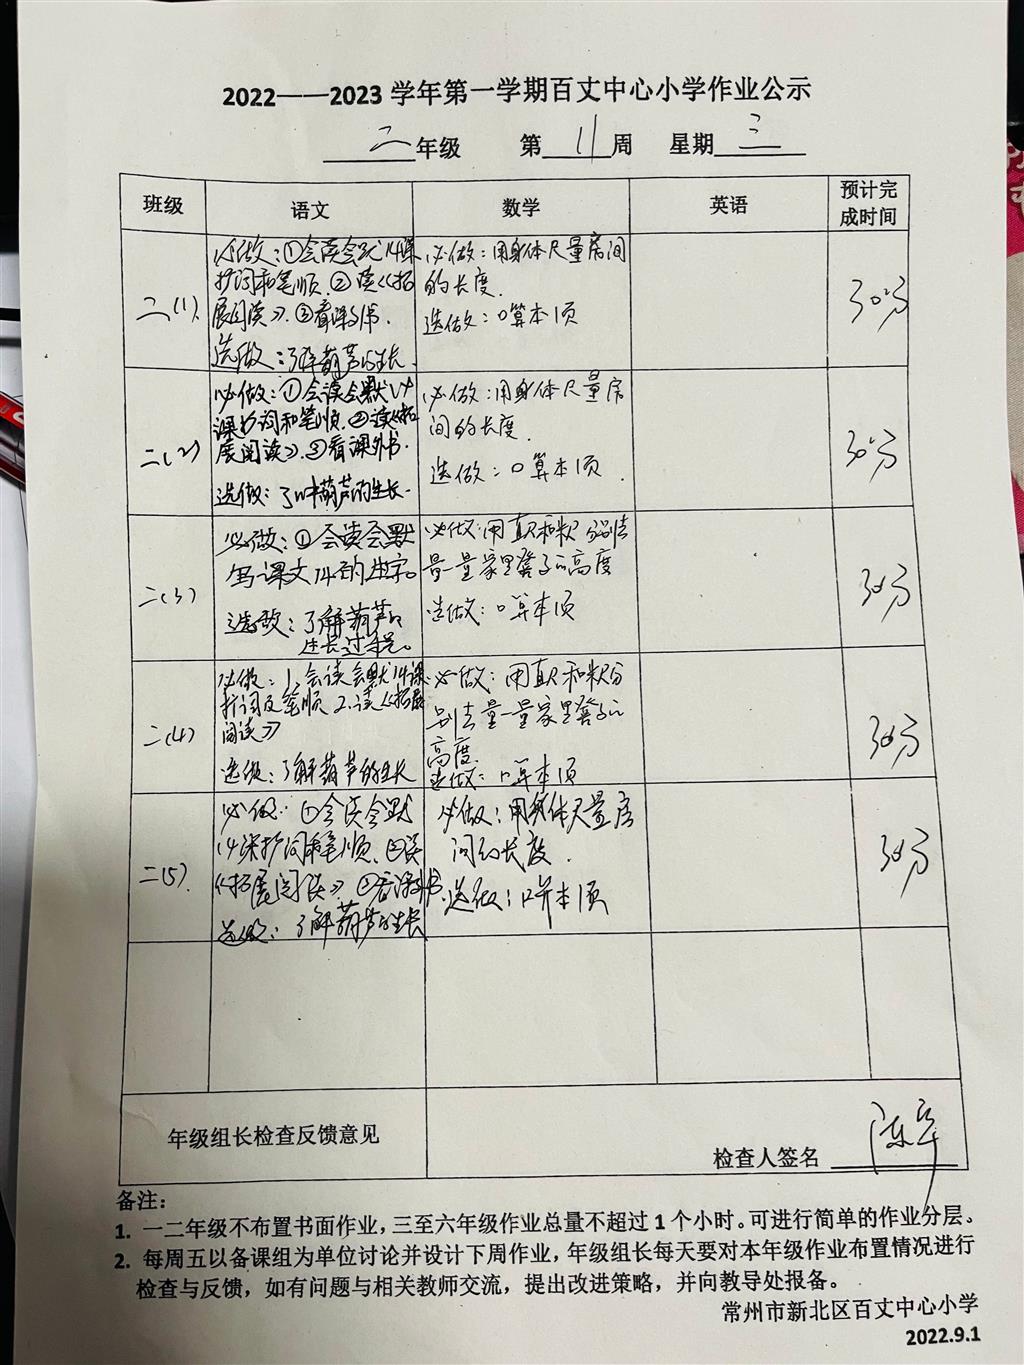 2022——2023 学年第一学期百丈中心小学作业公示
二年级 第11周 星期三
班级 语文 数学 英语 预计完
成时间
二(1)
必做：①会读会默14课
扩词和笔顺.②读《拓
展阅读》.③看课外书.
选做：了解葫芦的生长.
必做：用身体尺量房间
的长度.
选做：口算本1页
30分
二(2)
必做：①会读会默14
课扩词和笔顺.②读《拓
展阅读》.③看课外书.
选做：了解葫芦的生长.
必做：用身体尺量房
间的长度.
选做：口算本1页.
30分
二(3)
必做：①会读会默
写课文14的生字。
选做：了解葫芦的
生长过程。
必做：用直尺和米尺分别去
量一量家里凳子的高度
选做：口算本1页
30分
二(4)
必做：1.会读会默14课
扩词及笔顺 2.读《拓展
阅读》
选做：了解葫芦的生长
必做：用直尺和米尺分
别去量一量家里凳子的
高度
选做：口算本1页
30分
二(5)
必做：①会读会默
14课扩词和笔顺、②读
《拓展阅读》③看课外书.
选做：了解葫芦的生长
必做：用身体尺量房
间的长度.
选做：口算本1页
30分
年级组长检查反馈意见
检查人签名
备注：
1. 一二年级不布置书面作业，三至六年级作业总量不超过 1 个小时。可进行简单的作业分层。
2. 每周五以备课组为单位讨论并设计下周作业，年级组长每天要对本年级作业布置情况进行
检查与反馈，如有问题与相关教师交流，提出改进策略，并向教导处报备。
常州市新北区百丈中心小学
2022.9.1